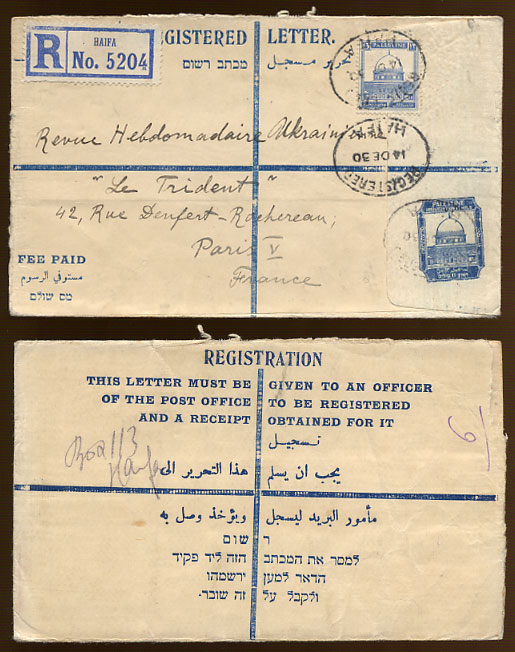 R
HAIFA
No. 5204
GISTERED LETTER.
מכתב רשום
مكتوب مسجل
PALESTINE
REGISTERED
14 DE 30
HAIFA
Revue Hebdomadaire Ukrainienne
"Le Trident"
42, Rue Denfert-Rochereau,
Paris V
France
PALESTINE
FEE PAID
مستوفي الرسوم
מס שולם
REGISTRATION
THIS LETTER MUST BE GIVEN TO AN OFFICER
OF THE POST OFFICE TO BE REGISTERED
AND A RECEIPT OBTAINED FOR IT
تسجيل
يجب ان يسلم هذا التحرير الى
مأمور البريد ليسجل ويؤخذ وصل به
רשום
למסר את המכתב הזה ליד פקיד
הדאר למען ירשמהו
ולקבל על זה שובר.
Box 113
Haifa
6